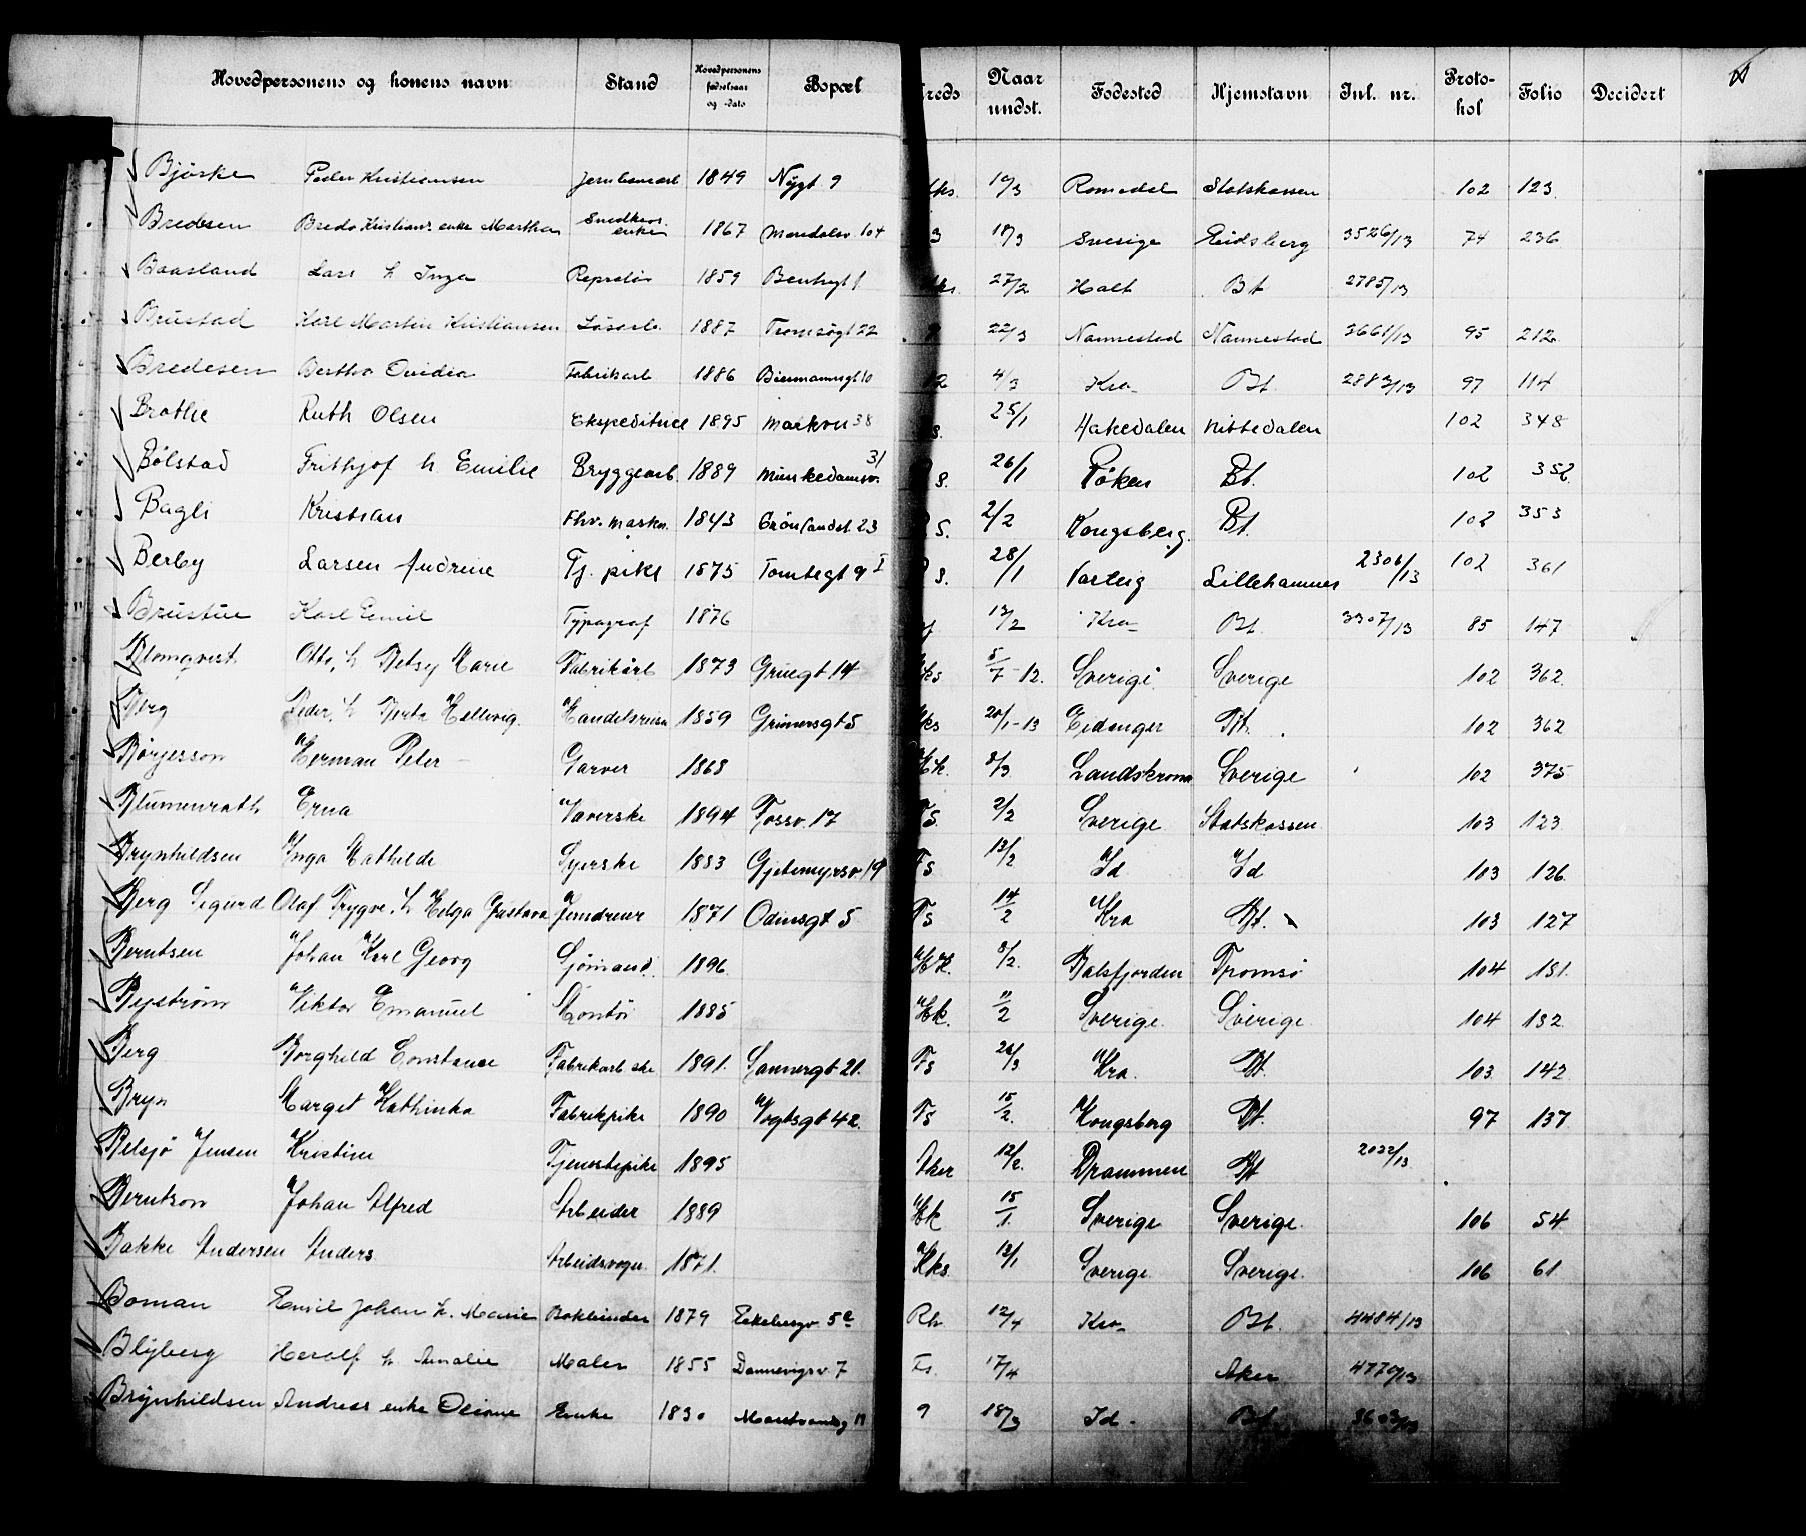 Hovedpersonens og konens navn Stand Hovedpersonens fødselsaar og -dato Bopæl Kreds Naar undst. Fødested Hjemstavn Jnl. nr. Proto-kol Folio Decidert
Bjørke Peder Kristiansen Jernbanearb 1849 Nygt 9 10/3 Romedal Statskassen 102 123
Bredesen Bredo Kristians. enke Martha Snedkers enke 1867 Maridalsv. 104 3 18/3 Sverige Eidsberg 3526/13 74 236
Baasland Lars h Inga Repslår 1859 27/2 Holt Bt 2785/13
Brustad Karl Martin Kristiansen Løsarb. 1887 Tromsøgt 22 22/3 Nannestad Nannestad 3661/13 95 212
Bredesen Bertha Ovidia Fabrikarb 1886 Biermannsgt 10 12 4/3 Kra Bt. 2883/13 97 114
Brathe Ruth Olsen Ekspeditrice 1895 Markvn 38 s. 25/1 Hakedalen Nittedalen 102 348
Bølstad Frithjof h Emilie Bryggearb. 1889 Munkedamsv. 31 s. 26/1 Røken Bt. 102 352
Bagli Kristian Fhv. maskn. 1843 Grønlandsl. 23 s. 2/2 Kongsberg Bt. 102 353
Berby Larsen Andrine Tj. pike 1875 Tomtegt 9 I s. 28/1 Varteig Lillehammer 2306/13 102 361
Brustue Karl Emil Typograf 1876 13/2 Kra Bt. 3307/13 85 147
Blomqvist Otto, h Betsy Marie Fabrikarb 1873 Gruegt 14 ks 5/7-12. Sverige Sverige 102 362
Berg Peder, h Berta Hellevig. Handelsreisn 1859 Grimersgt 5 ks 20/1-13 Eidanger Bt. 102 362
Børjesson Herman Peter Garver 1868 Hk. 8/3 Landskrona Sverige 102 375
Blumenrath Erna Væverske 1894 Fossv. 17 Fs. 2/2 Sverige Statskassen 103 123
Brynhildsen Inga Mathilde Syerske 1883 Gjetemyrsv. 19 Fs 13/2 Id Id 103 126
Berg Sigurd Olaf Trygve, h Helga Gustava Jendreier 1871 Odinsgt 5 Fs 14/2 Kra Bt. 103 127
Berntsen Johan Karl Georg Sjømand. 1896 Hk. 8/2. Balsfjorden Tromsø 104 131.
Bystrøm Viktor Emanuel Kontor 1885 Hk. 11/2 Sverige Sverige 104 132
Berg Borghild Constance Fabrikarb ske 1891. Sannergt 21. Fs 26/3 Kra. Bt. 103 142
Bryn Marget Kathinka Fabrikpike 1890 Vogtsgt 42. Fs 15/2. Kongsberg Bt. 97 137
Belsjø Jensen Kristine Tjenestepike 1895 Aker 12/2. Drammen Bt 2022/13
Berntson Johan Alfred Arbeider 1889 Hk 15/1. Sverige Sverige. 106 54
Bakke Andersen Anders Arbeidsvogn. 1871. Kks 13/1 Sverige Sverige. 106 61
Boman Emil Johan h. Marie Bokbinder 1879 Ekebergv. 5c Rh 12/4 Kra Bt. 4484/13
Blyberg Harolf h Amalie Maler 1855 Dannevigsv. 7 Fs. 17/4 Aker 4770/13
Brynhildsen Andreas enke Oliane Enke 1830 9 18/3 Id. Bt. 3603/13